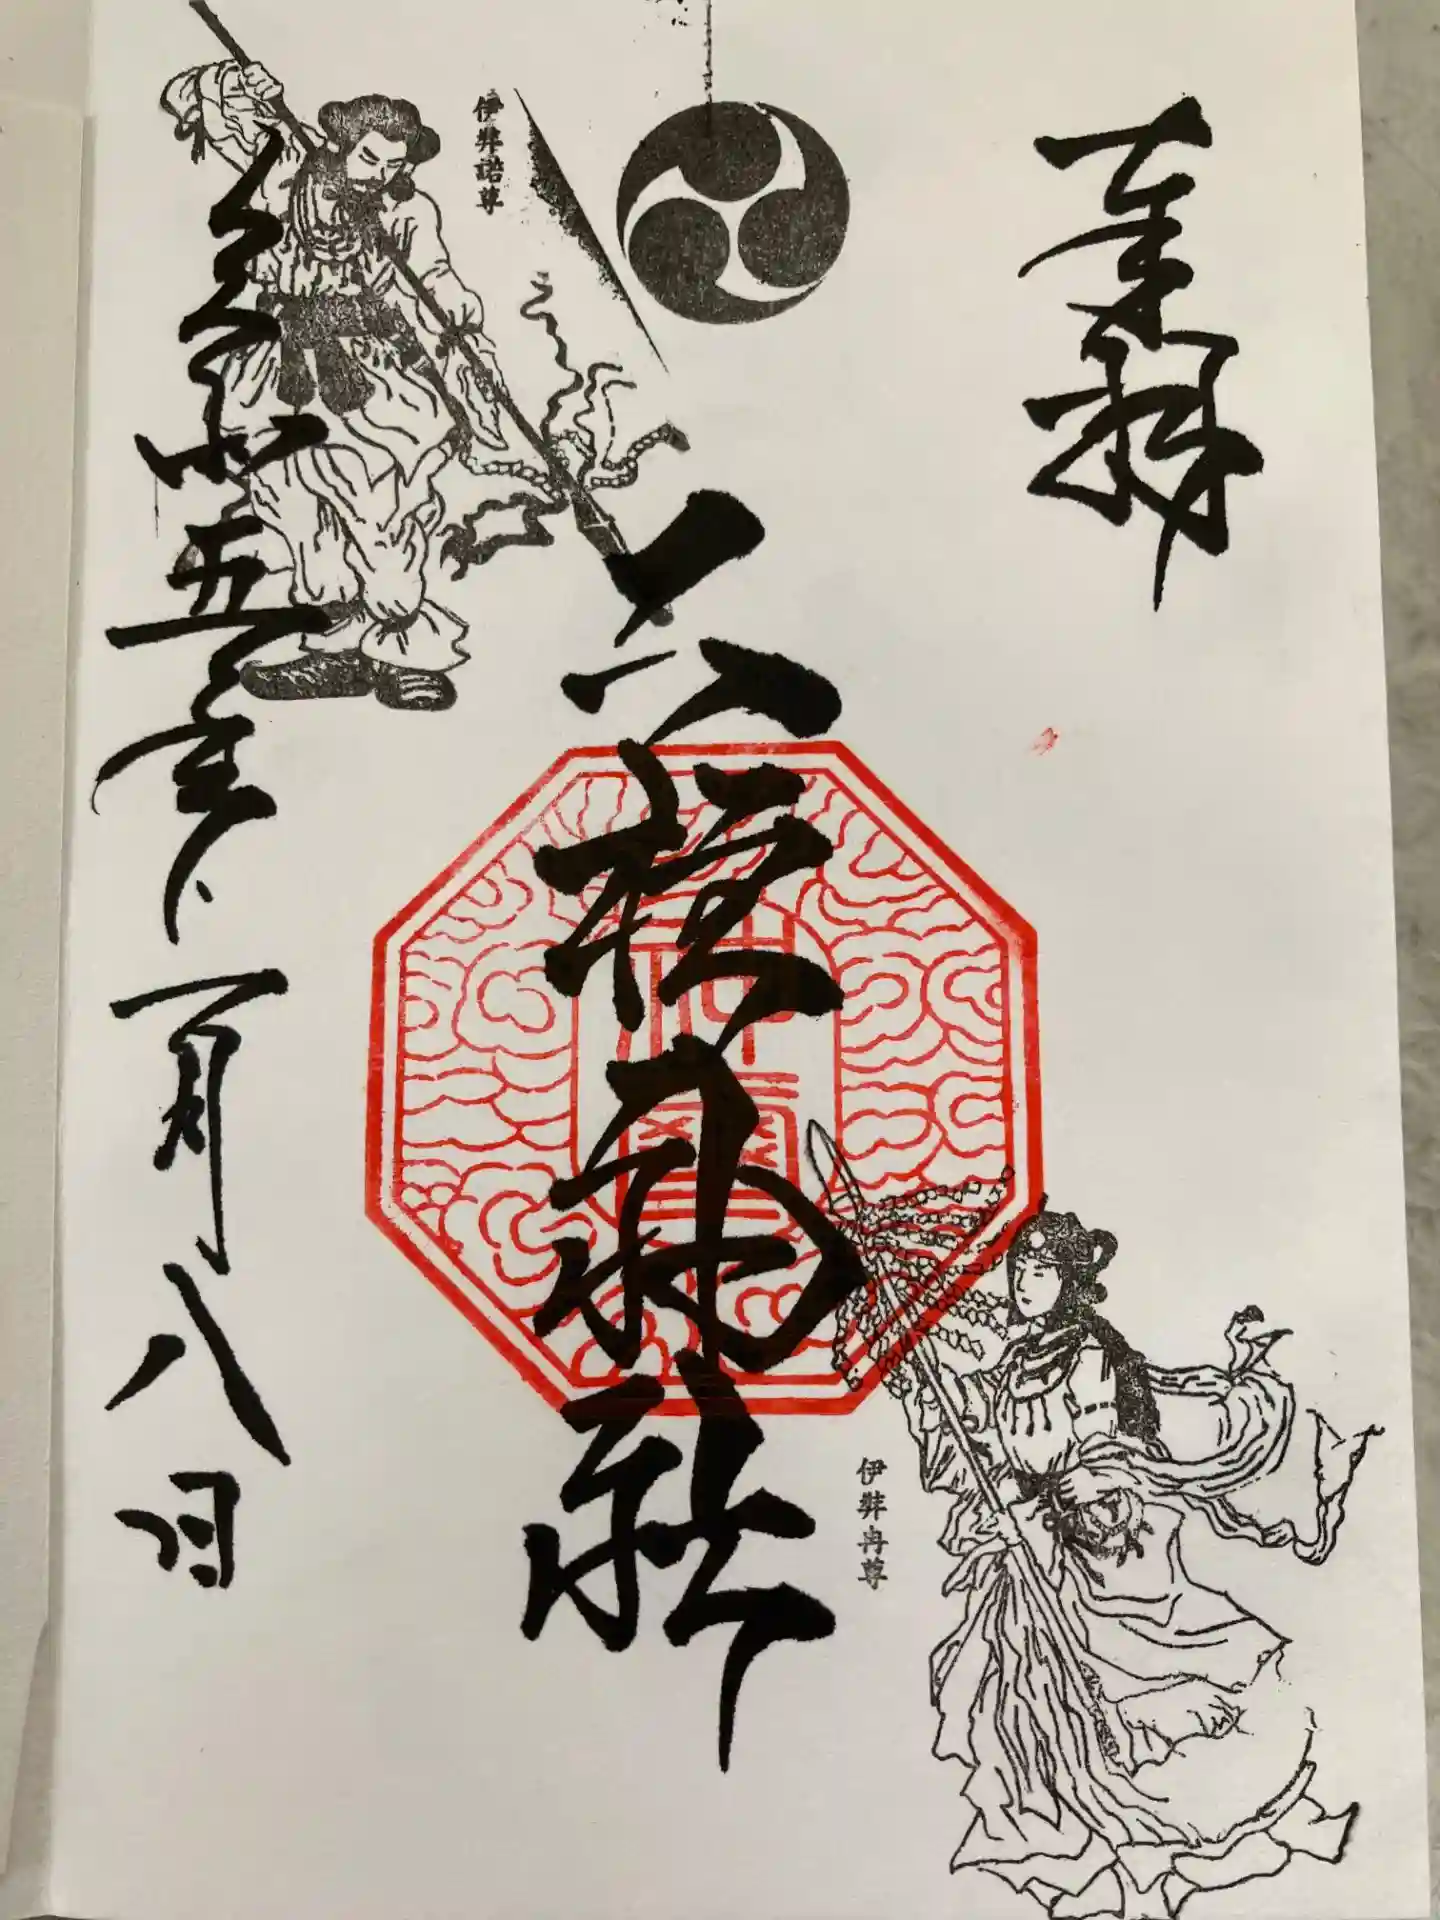 奉拝
六神社
令和五年一月八日
伊弉諾尊
伊弉冉尊
神璽